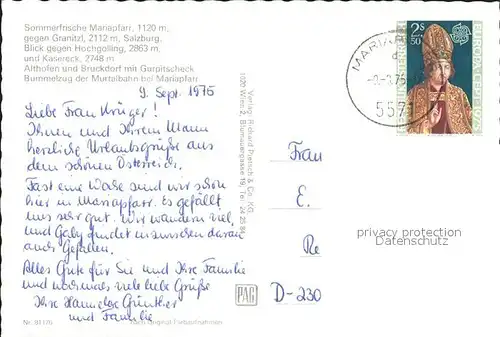 Sommerfrische Mariapfarr, 1120 m,
gegen Granitzl, 2112 m, Salzburg.
Blick gegen Hochgolling, 2863 m,
und Kasereck, 2748 m
Althofen und Bruckdorf mit Gerpitscheck
Bummelzug der Murtalbahn bei Mariapfarr
9. Sept. 1975
Liebe Frau Krüger!
Ihnen und Ihrem Mann
herzliche Urlaubsgrüße aus
dem schönen Österreich.
Fast eine Woche sind wir schon
hier in Mariapfarr. Es gefällt
uns sehr gut. Wir wandern viel,
und Gaby findet inzwischen daran
auch Gefallen.
Alles Gute für Sie und Ihre Familie
und nochmals viele liebe Grüße
Ihre Hannelore Günther
und Familie
Nr. 91170
nach Original-Farbaufnahmen
Verlag: Richard Pietsch & Co. KG.
1020 Wien 2, Blumauergasse 19, Tel. 24 26 84
PAG
2 S
50
MARIAPF
5571
Frau
E.
Re
D-230
privacy protection
Datenschutz